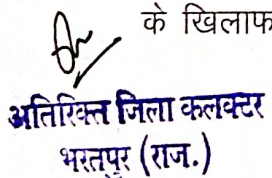 के खिलाफ
अतिरिक्त जिला कलक्टर
भरतपुर (राज.)